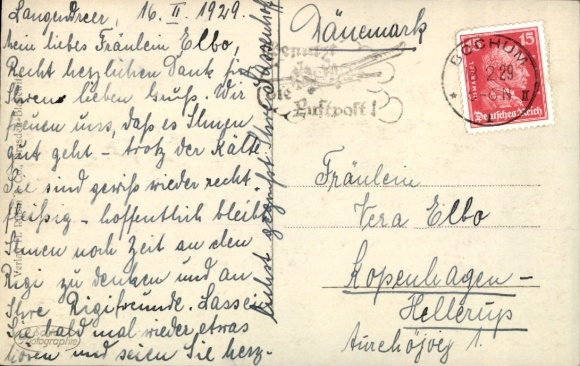 Langendreer, 16. II. 1929.
Mein liebes Fräulein Elbo,
Recht herzlichen Dank für
Ihren lieben Gruß. Wir
freuen uns, daß es Ihnen
gut geht – trotz der Kälte.
Sie sind gewiß wieder recht
fleißig – hoffentlich bleibt
Ihnen noch Zeit an den
Rigi zu denken und an
Ihre Rigifreunde. Lassen
Sie bald mal wieder etwas
hören und seien Sie herz-
lichst gegrüßt Ihre
Dänemark
Benutzt
die
Luftpost!
BOCHUM
2.29
15 15
Deutsches Reich
Fräulein
Vera Elbo
Kopenhagen –
Hellerup
Aurehöjvej 1.
Verlag